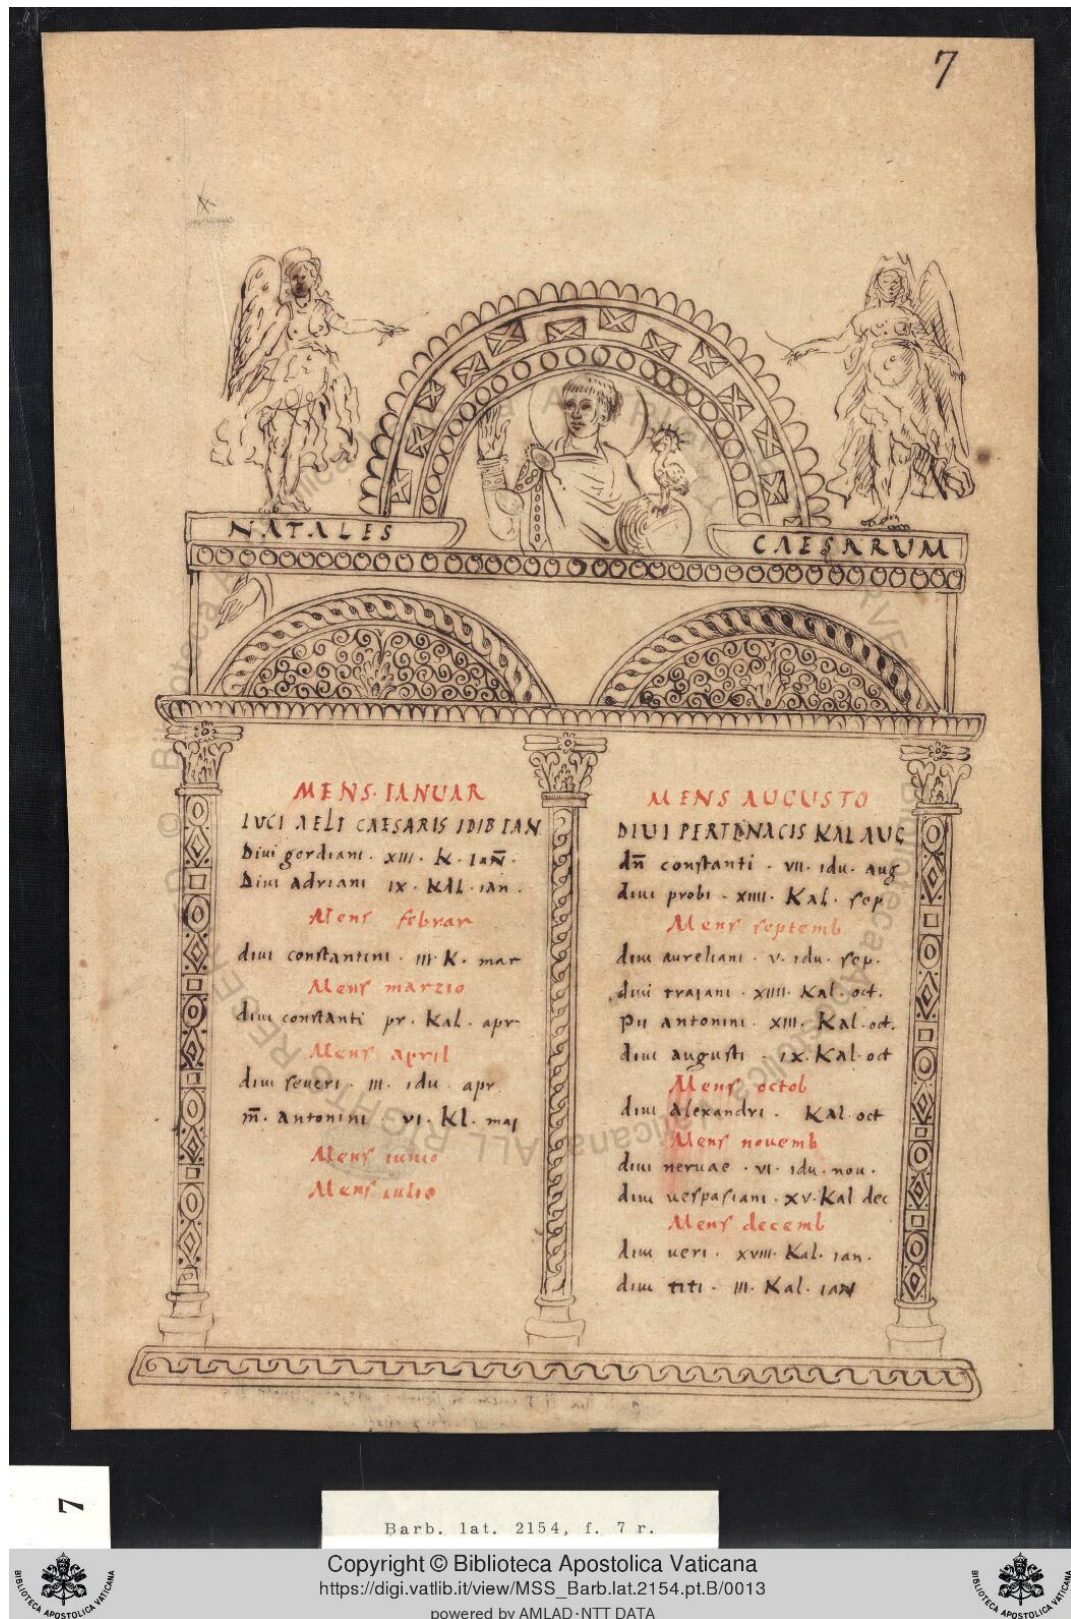 7
NATALES
CAESARVM
MENS·IANUAR
LVCI AELI CAESARIS IDIB IAN
Diui gordiani · XIII · K · IAN̄ ·
Diui adriani IX · KAL · ian ·
Mens febrar
diui constantini · III · K · mar
Mens marzio
diui constanti pr · Kal · apr
Mens april
diui seueri · III · idu · apr
m̄ · antonini VI · Kl · mai
Mens iunio
Mens iulio
MENS AUGUSTO
DIUI PERTENACIS KAL AUG
dn̄ constanti · VII · idu · aug
diui probi · XIIII · Kal · sep
Mens septemb
diui aureliani · V · idu · sep ·
diui traiani · XIIII · Kal · oct ·
pii antonini · XIII · Kal · oct ·
diui augusti · IX · Kal · oct
Mens octob
diui alexandri · Kal · oct
Mens nouemb
diui neruae · VI · idu · nou ·
diui uespasiani · XV · Kal dec
Mens decemb
diui ueri · XVIII · Kal · ian ·
diui titi · III · Kal · IAN
7
Barb. lat. 2154, f. 7 r.
Copyright © Biblioteca Apostolica Vaticana
https://digi.vatlib.it/view/MSS_Barb.lat.2154.pt.B/0013
powered by AMLAD·NTT DATA
BIBLIOTECA APOSTOLICA VATICANA
BIBLIOTECA APOSTOLICA VATICANA